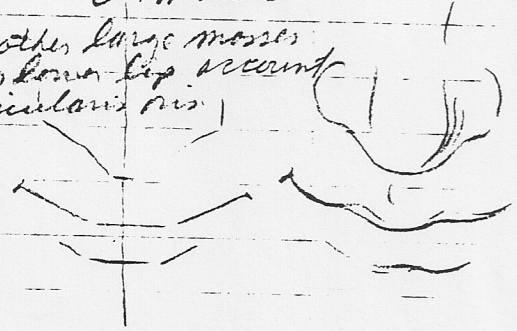 other large masses
lower lip account
icularis oris